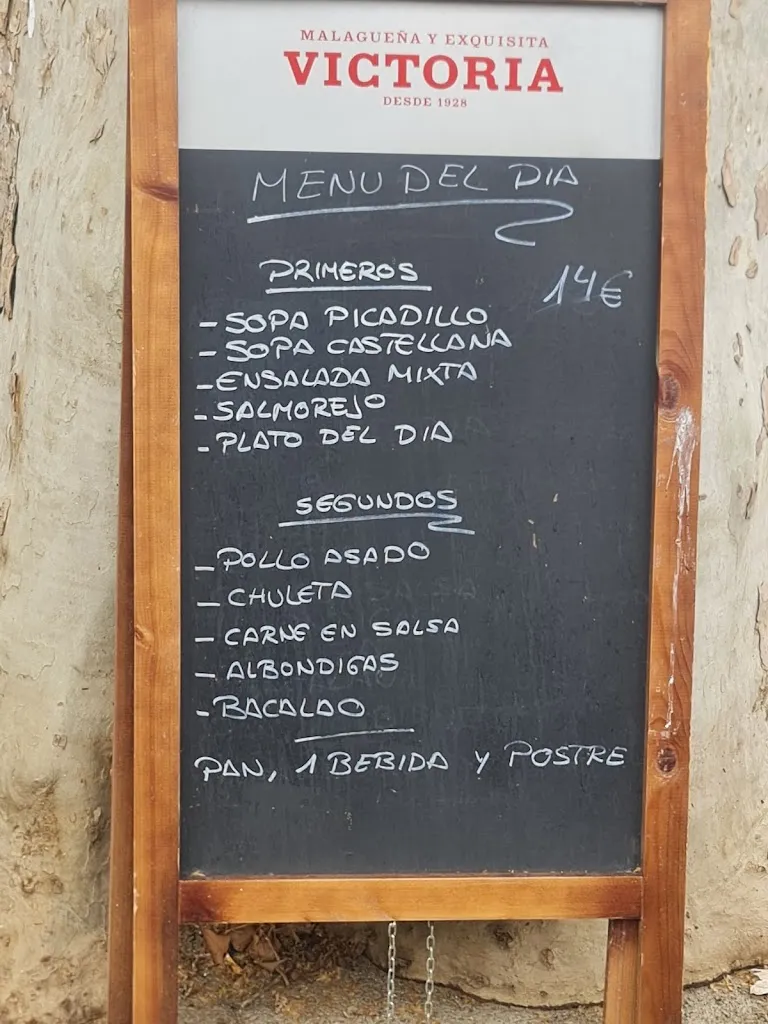 MALAGUEÑA Y EXQUISITA
VICTORIA
DESDE 1928
MENU DEL DIA
PRIMEROS
14€
- SOPA PICADILLO
- SOPA CASTELLANA
- ENSALADA MIXTA
- SALMOREJO
- PLATO DEL DIA
SEGUNDOS
- POLLO ASADO
- CHULETA
- CARNE EN SALSA
- ALBONDIGAS
- BACALAO
PAN, 1 BEBIDA y POSTRE